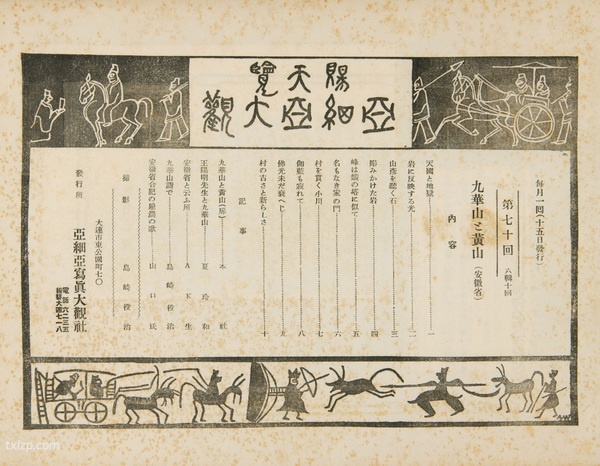 賜天覽
亞細亞大觀
毎月一回(十五日發行)
第七十回 六輯十回
九華山と黃山(安徽省)
內容
天國と地獄 一
岩に反映する光 二
山彦を聽く石 三
踏みかけた岩 四
峰は鐵の塔に似て 五
名もなき家の門 六
村を貫く小川 七
伽藍も寂れて 八
佛光未だ衰へじ 九
村の古さと新らしさ 十
記事
九華山と黃山(扉) 本社
王陽明先生と九華山 夏玲和
安徽省と云ふ所 A・K生
九華山讚で 島崎役治
安徽省合肥の糧農の歌 山口民
撮影 島崎役治
發行所 大連市東公園町七〇
亞細亞寫眞大觀社
電話六二三五
振替大連七一八
txlzp.com